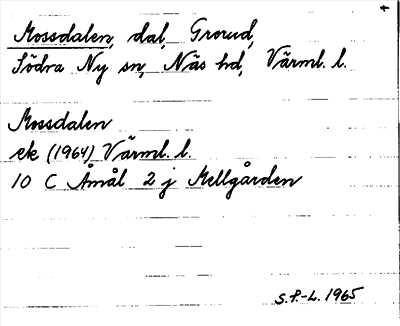 Mossdalen, dal, Grorud,
Södra Ny sn, Näs hd, Värml. l.
Mossdalen
ek (1964) Värml. l.
10 C Åmål 2 j Mellgården
S.P.-L. 1965